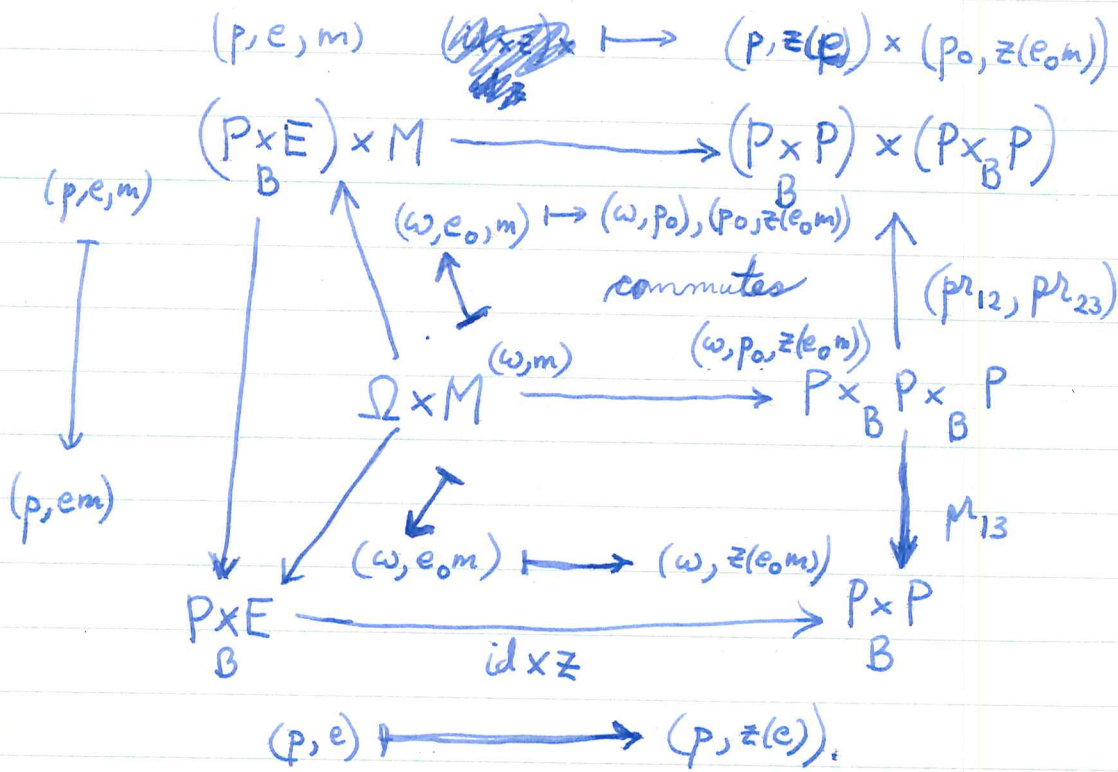 (p, e, m) ⟼ (p, z(e)) × (p₀, z(e₀m))
(P ×_B E) × M ⟶ (P ×_B P) × (P ×_B P)
(p, e, m)
(ω, e₀, m) ⟼ (ω, p₀), (p₀, z(e₀m))
commutes
(pr₁₂, pr₂₃)
(ω, m) (ω, p₀, z(e₀m))
Ω × M ⟶ P ×_B P ×_B P
(p, em)
pr₁₃
(ω, e₀m) ⟼ (ω, z(e₀m))
P ×_B E ⟶ P ×_B P
id × z
(p, e) ⟼ (p, z(e)).